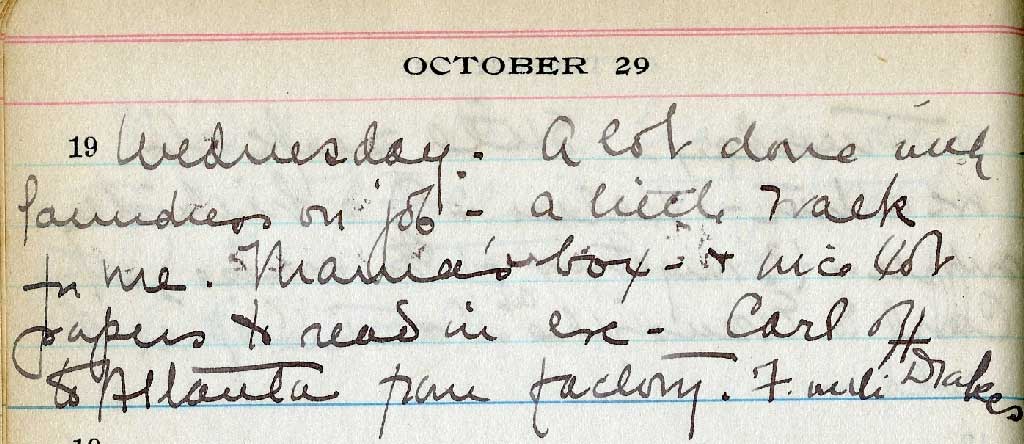 OCTOBER 29
19 Wednesday. A lot done with
laundress on job - a little
to me. Mama's box - & nice lot
papers to read in eve - Carl off
to Atlanta from factory. F. with Drakes